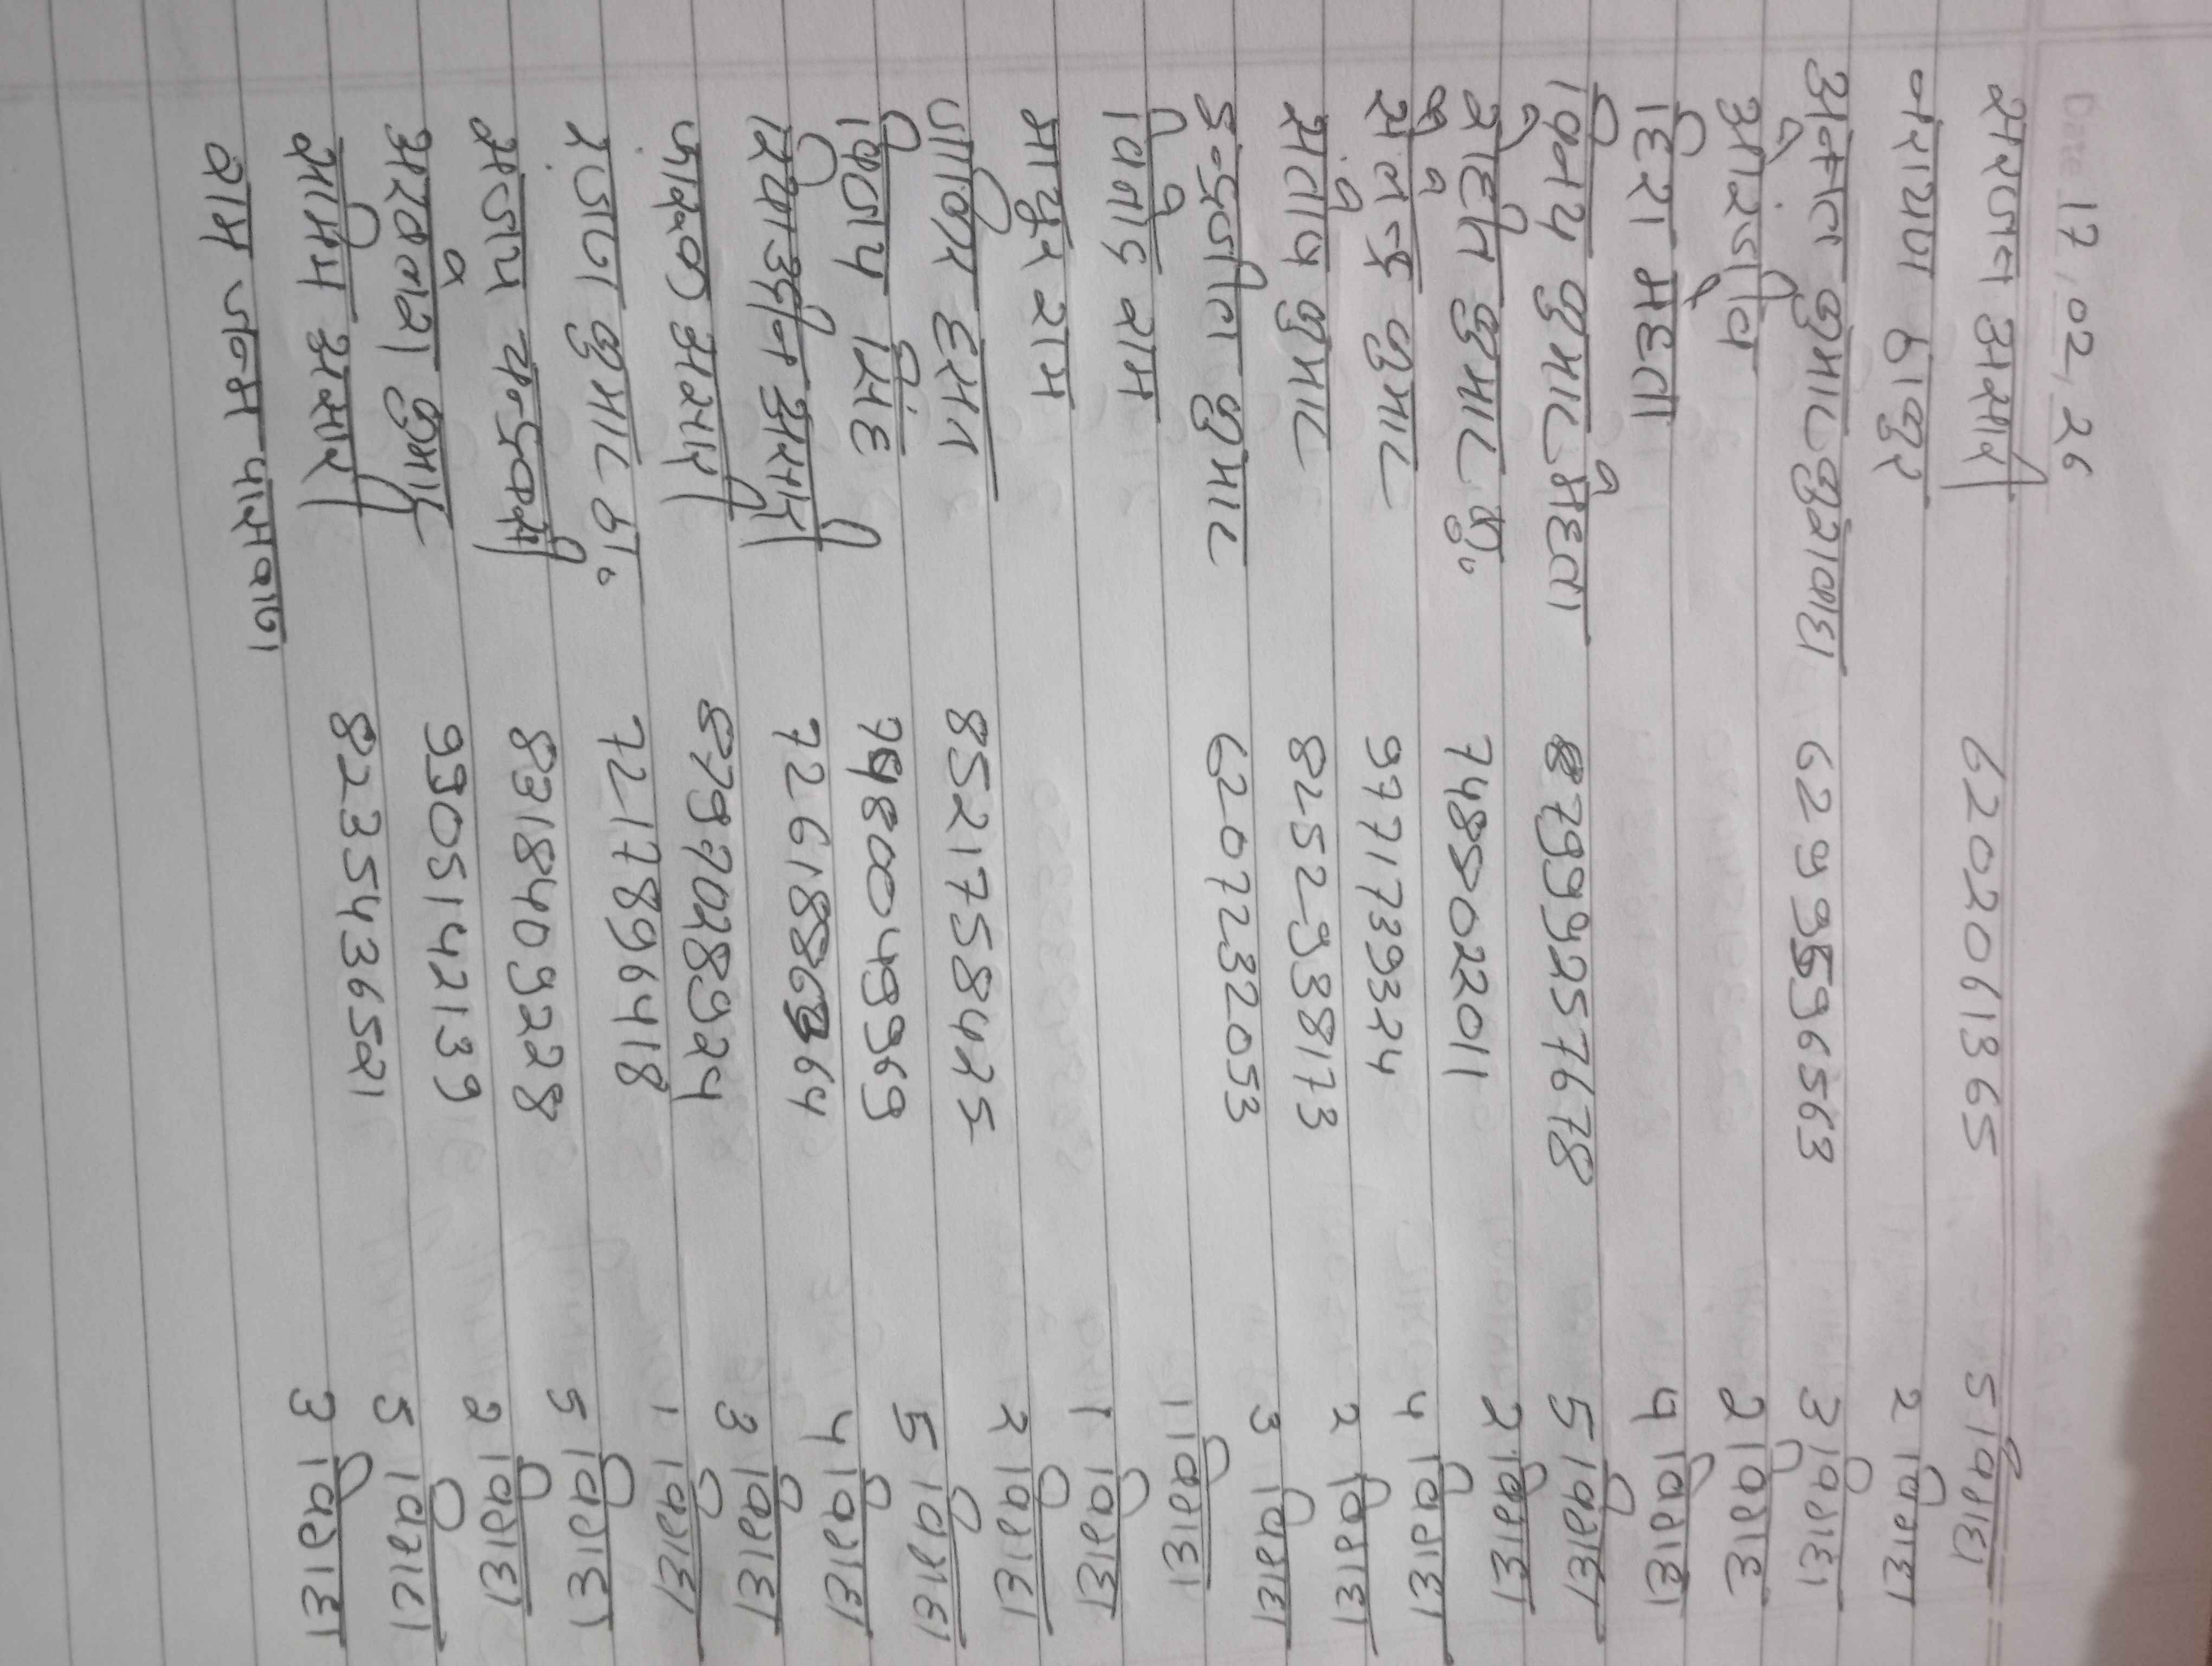 Date 17,02,26
सरजल अंसारी 6202061365 5 विगहा
नरायण ठाकुर 2 विगहा
अनमोल कुमार कुशवाहा 6299596563 3 विगहा
औरंगजेब 2 विगाह
हिरा मेहता 4 विगहा
विनय कुमार मेहता 87999257678 5 विगहा
रोहित कुमार कु० 7485022011 2 विगहा
सैलेन्द्र कुमार 9771739324 4 विगहा
संतोष कुमार 8252938173 2 विगहा
इन्द्रजीत कुमार 6207232053 3 विगहा
विनोद राम 1 विगहा
माथुर राम 1 विगहा
जाकिर हसन 8521758425 2 विगहा
विजय सिंह 7480049969 5 विगहा
सियाउदीन अंसारी 7261886364 4 विगहा
फारुक अंसारी 8797028924 3 विगहा
रंजन कुमार ठा० 7217896418 1 विगहा
संजय चन्द्रवंशी 8318409228 5 विगहा
अखलेश कुमार 9305142139 2 विगहा
समिम अंसारी 8235436521 5 विगहा
राम जन्म पासवान 3 विगहा